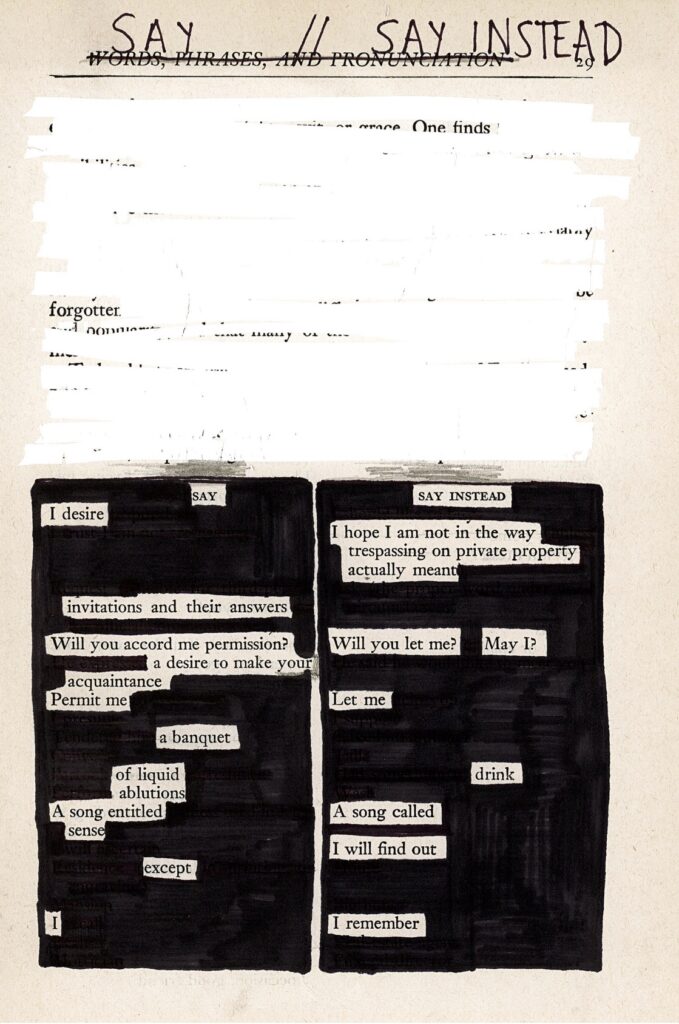 SAY // SAY INSTEAD
WORDS, PHRASES, AND PRONUNCIATION 29
or grace. One finds
be
forgotten
many of the
SAY
I desire
invitations and their answers
Will you accord me permission?
a desire to make your
acquaintance
Permit me
a banquet
of liquid
ablutions
A song entitled
sense
except
I
SAY INSTEAD
I hope I am not in the way
trespassing on private property
actually meant
Will you let me? May I?
Let me
drink
A song called
I will find out
I remember